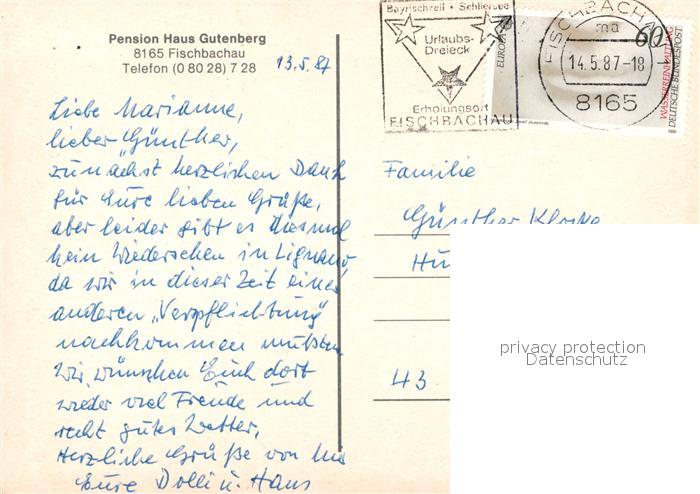 Pension Haus Gutenberg
8165 Fischbachau
Telefon (0 80 28) 7 28
13.5.87
Liebe Marianne,
lieber Günther,
zunächst herzlichen Dank
für Eure lieben Grüße,
aber leider gibt es diesmal
kein Wiedersehen in Lignano,
da wir in dieser Zeit einer
anderen „Verpflichtung"
nachkommen mußten.
Wir wünschen Euch dort
wieder viel Freude und
recht gutes Wetter.
Herzliche Grüße von
Eure Dolli u. Hans
Bayrischzell · Schliersee
Urlaubs-
Dreieck
Erholungsort
FISCHBACHAU
EUROPA
60
WASSERREINHALTUNG
DEUTSCHE BUNDESPOST
FISCHBACHAU
ma
14.5.87-18
8165
Familie
Günther
43
privacy protection
Datenschutz